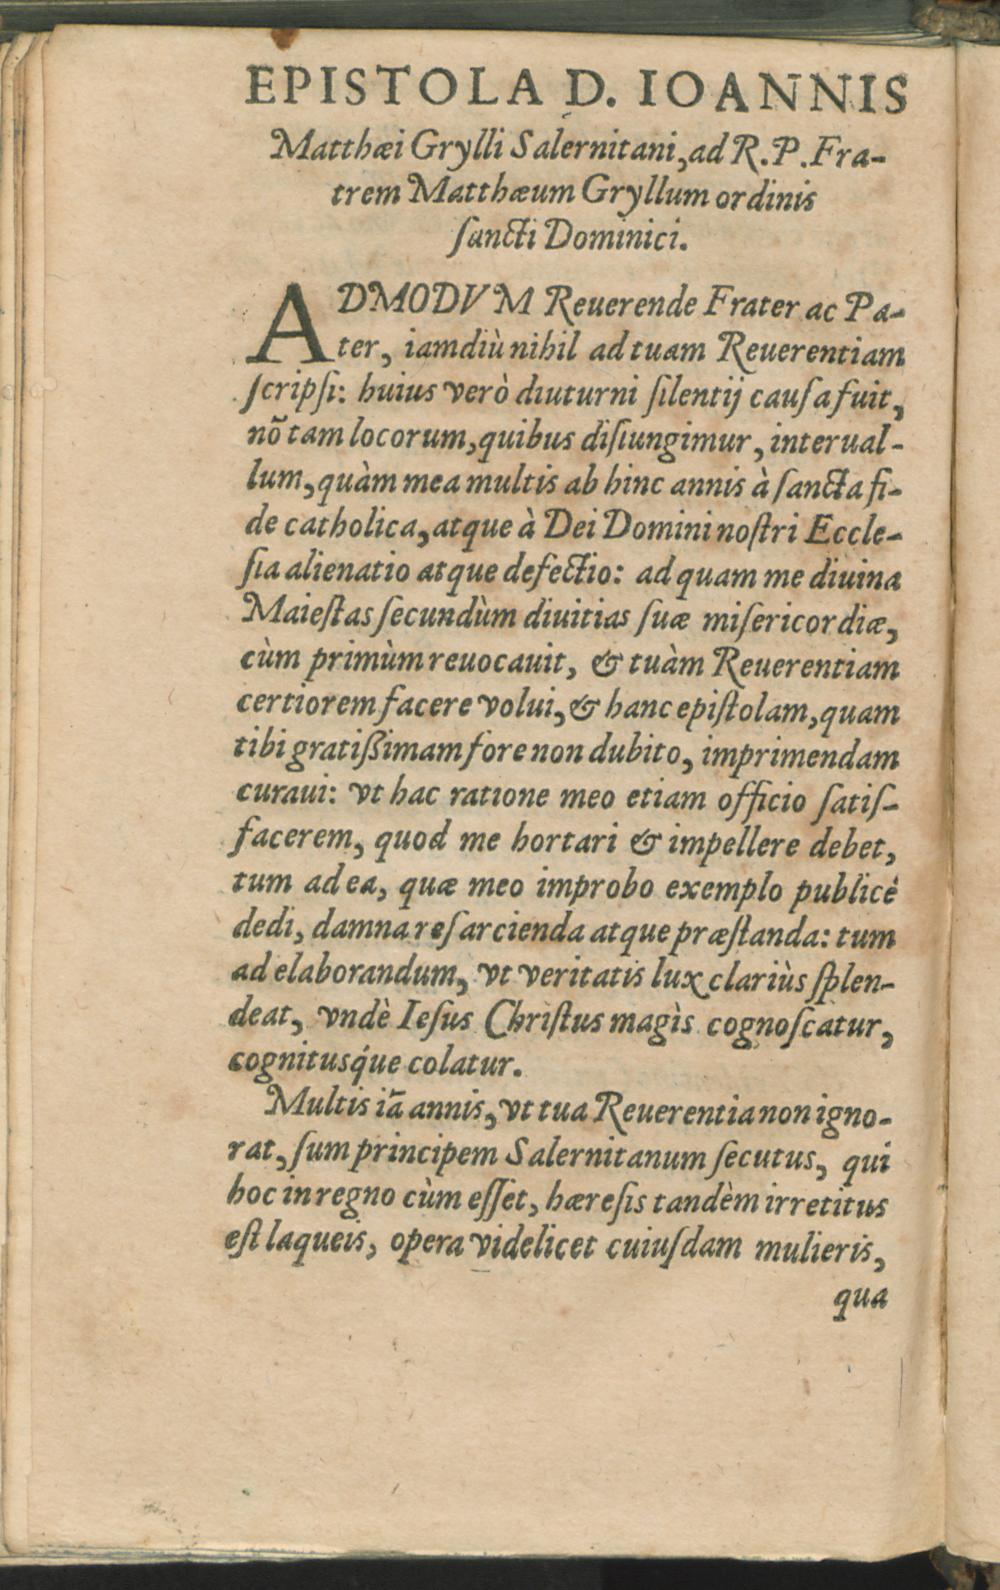 EPISTOLA D. IOANNIS
Matthæi Grylli Salernitani, ad R. P. Fra-
trem Matthæum Gryllum ordinis
ſancti Dominici.
ADMODVM Reuerende Frater ac Pa-
ter, iamdiù nihil ad tuam Reuerentiam
ſcripſi: huius verò diuturni ſilentij cauſa fuit,
nõ tam locorum, quibus diſiungimur, interual-
lum, quàm mea multis ab hinc annis à ſancta fi-
de catholica, atque à Dei Domini noſtri Eccle-
ſia alienatio atque defectio: ad quam me diuina
Maieſtas ſecundùm diuitias ſuæ miſericordiæ,
cùm primùm reuocauit, & tuàm Reuerentiam
certiorem facere volui, & hanc epiſtolam, quam
tibi gratißimam fore non dubito, imprimendam
curaui: vt hac ratione meo etiam officio ſatiſ-
facerem, quod me hortari & impellere debet,
tum ad ea, quæ meo improbo exemplo publicè
dedi, damna reſarcienda atque præſtanda: tum
ad elaborandum, vt veritatis lux clariùs ſplen-
deat, vndè Ieſus Chriſtus magìs cognoſcatur,
cognitusq́ue colatur.
Multis iã annis, vt tua Reuerentia non igno-
rat, ſum principem Salernitanum ſecutus, qui
hoc in regno cùm eſſet, hæreſis tandèm irretitus
eſt laqueis, opera videlicet cuiuſdam mulieris,
qua